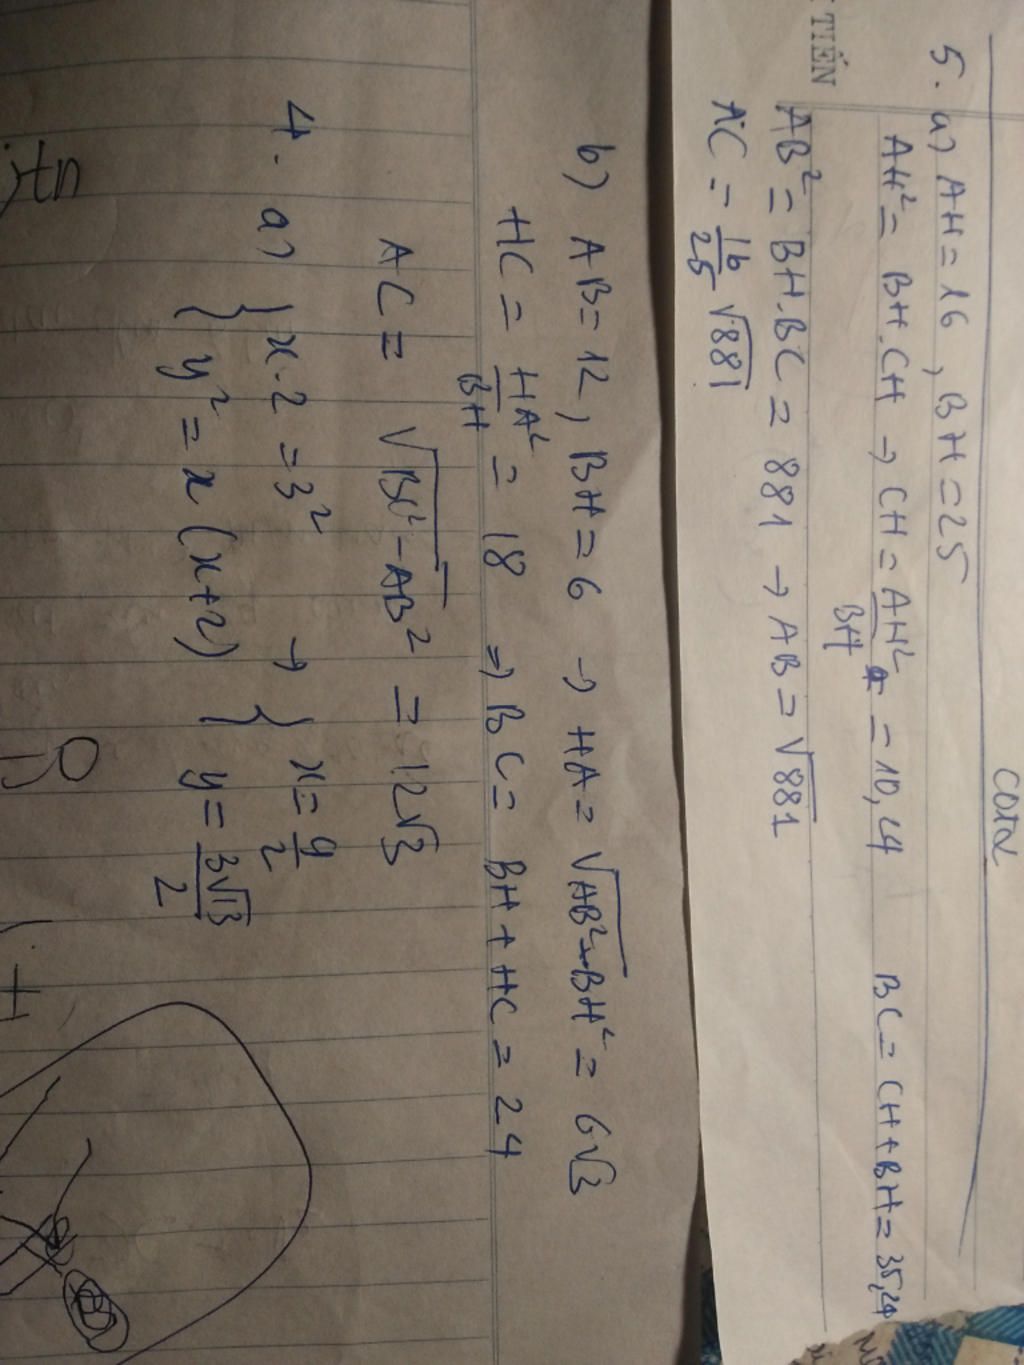 cotα
5. a) AH = 16, BH = 25
AH² = BH.CH → CH = AH²/BH = 10,24 BC = CH + BH = 35,24
TIẾN
AB² = BH.BC = 881 → AB = √881
AC = 16/25 √881
b) AB = 12, BH = 6 → HA = √AB² - BH² = 6√3
HC = HA²/BH = 18 ⇒ BC = BH + HC = 24
AC = √BC² - AB² = 12√3
4. a) { x.2 = 3² → { x = 9/2
y² = x(x+2) y = 3√13/2